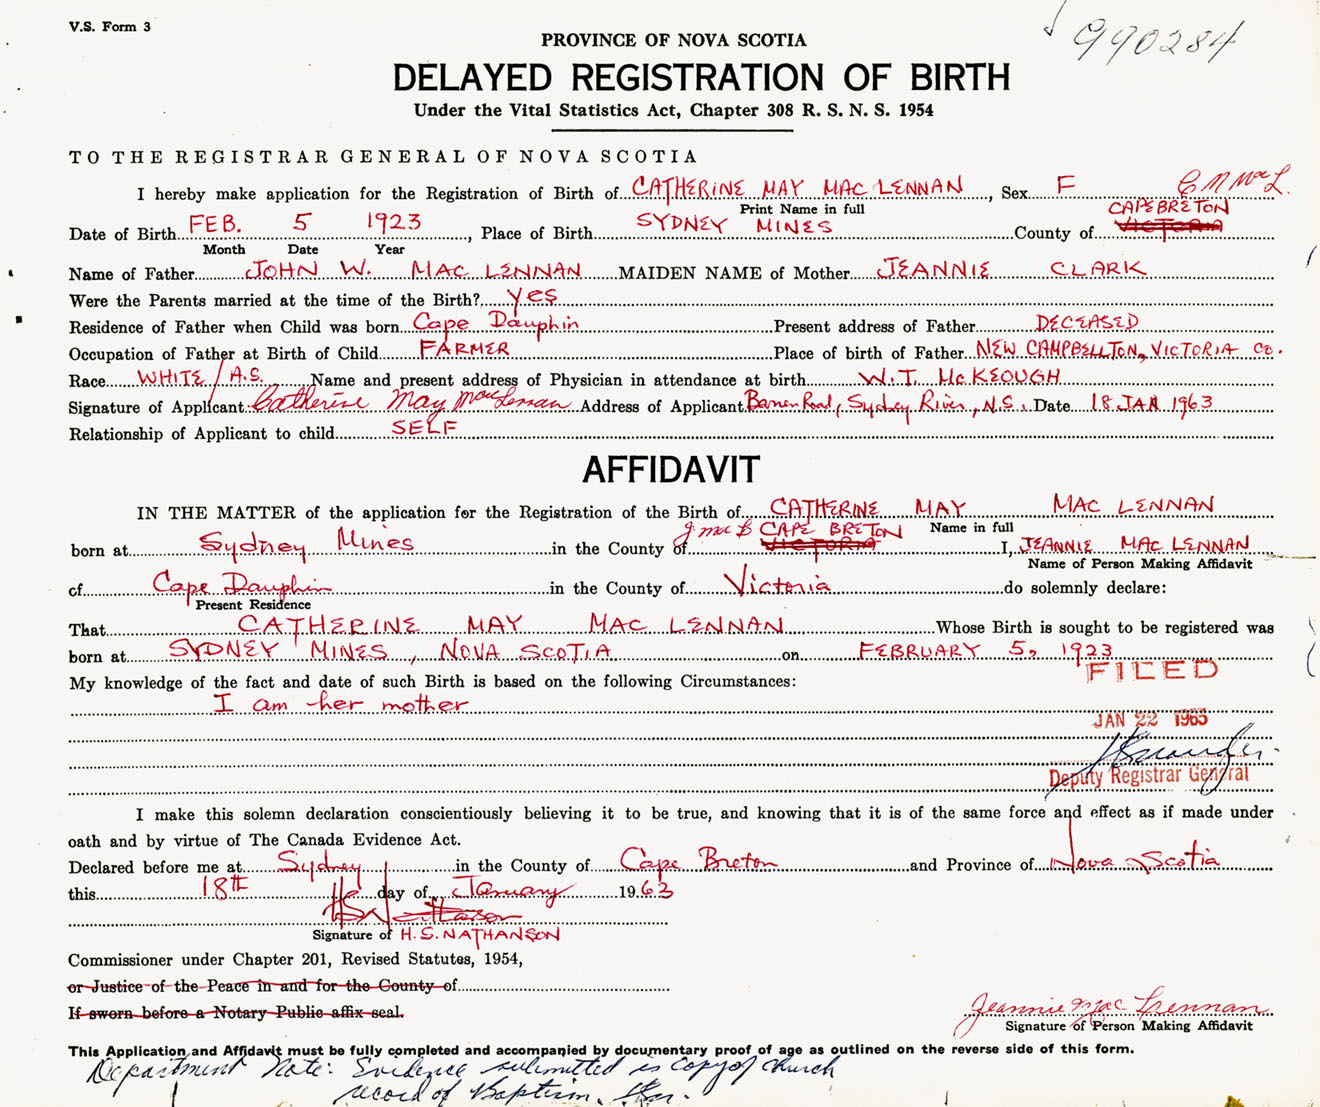 V.S. Form 3
990284
PROVINCE OF NOVA SCOTIA
DELAYED REGISTRATION OF BIRTH
Under the Vital Statistics Act, Chapter 308 R. S. N. S. 1954
TO THE REGISTRAR GENERAL OF NOVA SCOTIA
I hereby make application for the Registration of Birth of CATHERINE MAY MAC LENNAN, Sex F C M MacL.
Print Name in full CAPE BRETON
Date of Birth FEB. 5 1923, Place of Birth SYDNEY MINES County of VICTORIA
Month Date Year
Name of Father JOHN W. MAC LENNAN MAIDEN NAME of Mother JEANNIE CLARK
Were the Parents married at the time of the Birth? Yes
Residence of Father when Child was born Cape Dauphin Present address of Father DECEASED
Occupation of Father at Birth of Child FARMER Place of birth of Father NEW CAMPBELLTON, VICTORIA CO.
Race WHITE / A.S. Name and present address of Physician in attendance at birth W.T. McKEOUGH
Signature of Applicant Catherine May MacLennan Address of Applicant Barren Road, Sydney River, N.S. Date 18 JAN 1963
Relationship of Applicant to child SELF
AFFIDAVIT
IN THE MATTER of the application for the Registration of the Birth of CATHERINE MAY MAC LENNAN
J. Mac L CAPE BRETON Name in full
born at Sydney Mines in the County of VICTORIA I, JEANNIE MAC LENNAN
Name of Person Making Affidavit
of Cape Dauphin in the County of Victoria do solemnly declare:
Present Residence
That CATHERINE MAY MAC LENNAN Whose Birth is sought to be registered was
born at SYDNEY MINES, NOVA SCOTIA on FEBRUARY 5, 1923
FILED
My knowledge of the fact and date of such Birth is based on the following Circumstances:
I am her mother
JAN 22 1963
Deputy Registrar General
I make this solemn declaration conscientiously believing it to be true, and knowing that it is of the same force and effect as if made under
oath and by virtue of The Canada Evidence Act.
Declared before me at Sydney in the County of Cape Breton and Province of Nova Scotia
this 18th day of January 1963
Signature of H.S. NATHANSON
Commissioner under Chapter 201, Revised Statutes, 1954,
or Justice of the Peace in and for the County of
If sworn before a Notary Public affix seal.
Jeannie Mac Lennan
Signature of Person Making Affidavit
This Application and Affidavit must be fully completed and accompanied by documentary proof of age as outlined on the reverse side of this form.
Department Note: Evidence submitted is copy of church
record of Baptism.